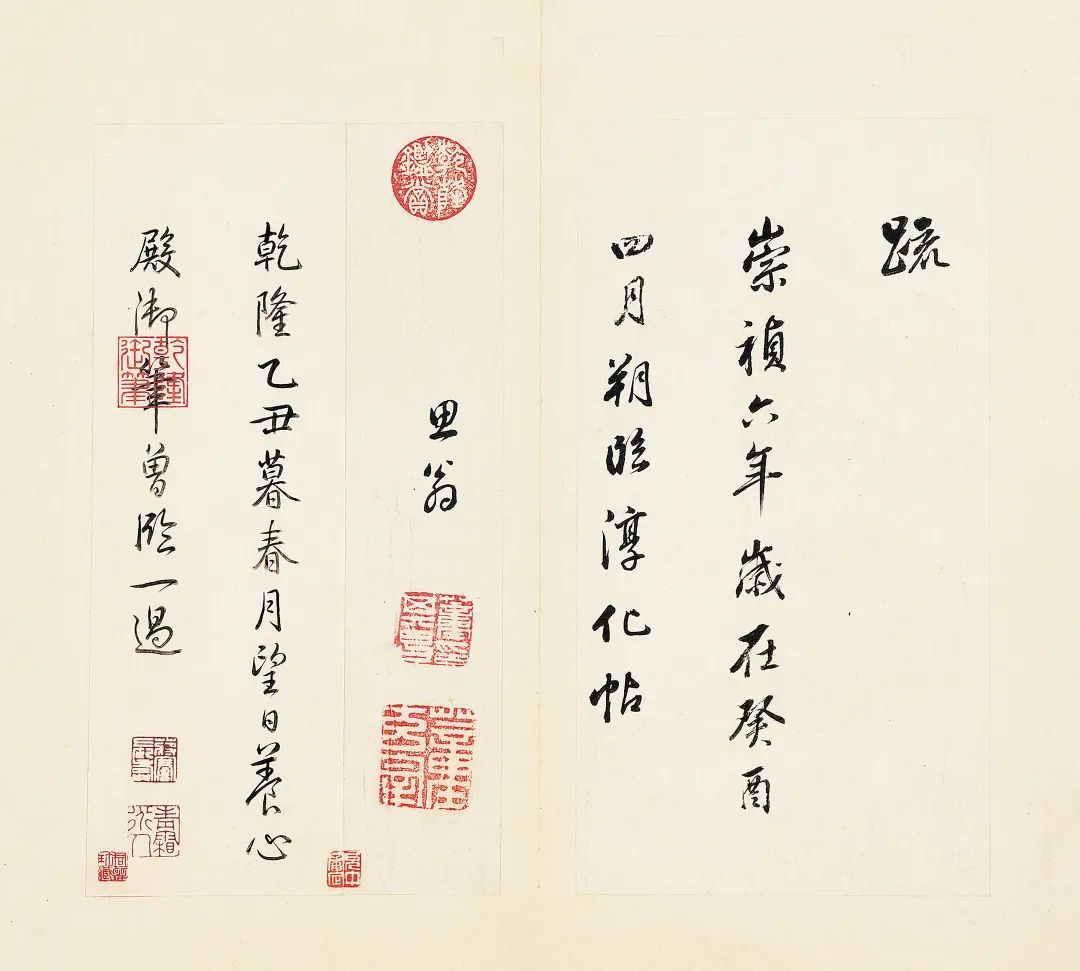 疏
崇禎六年歲在癸酉
四月朔臨淳化帖
思翁
乾隆乙丑暮春月望日養心
殿御筆曾臨一過
乾隆鑑賞
乾隆御筆